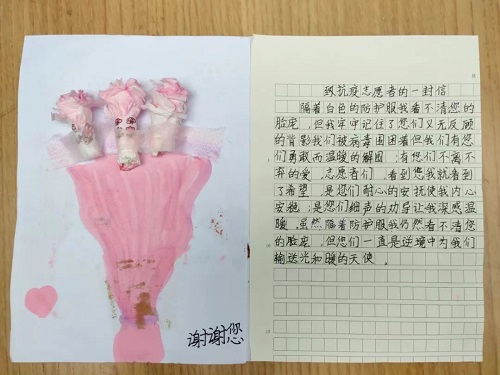 谢谢您
致抗疫志愿者的一封信
隔着白色的防护服我看不清您的
脸庞，但我牢牢记住了您们义无反顾
的背影我们被病毒围困着但我们有您
们勇敢而温暖的解围，有您们不离不
弃的爱，志愿者们，看到您我就看到
了希望，是您们耐心的安抚使我内心
安稳；是您们细声的劝导让我深感温
暖，虽然隔着防护服我仍然看不清您
的脸庞，但您们一直是逆境中为我们
输送光和暖的天使。